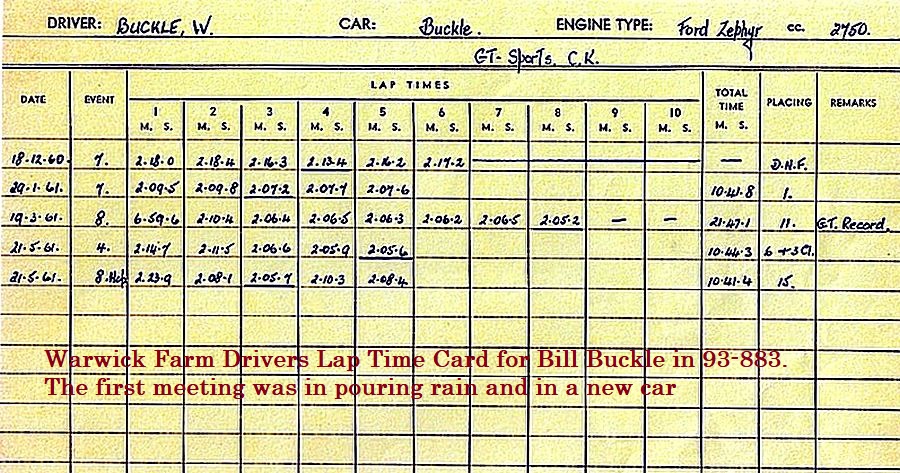 DRIVER: BUCKLE, W. CAR: Buckle. ENGINE TYPE: Ford Zephyr cc. 2750.
GT- Sports. C.K.
LAP TIMES
DATE EVENT 1 2 3 4 5 6 7 8 9 10 TOTAL TIME PLACING REMARKS
M. S. M. S. M. S. M. S. M. S. M. S. M. S. M. S. M. S. M. S. M. S.
18.12.60. 7. 2.18.0 2.18.4 2.16.3 2.13.4 2.16.2 2.17.2 — D.N.F.
29.1.61. 7. 2.09.5 2.09.8 2.07.2 2.07.7 2.07.6 10.41.8 1.
19.3.61. 8. 6.59.6 2.10.4 2.06.4 2.06.5 2.06.3 2.06.2 2.06.5 2.05.2 — — 21.47.1 11. GT. Record.
21.5.61. 4. 2.14.7 2.11.5 2.06.6 2.05.9 2.05.6 10.44.3 6 + 3Cl.
21.5.61. 8.Hcp 2.23.9 2.08.1 2.05.7 2.10.3 2.08.4 10.41.4 15.
Warwick Farm Drivers Lap Time Card for Bill Buckle in 93-883.
The first meeting was in pouring rain and in a new car